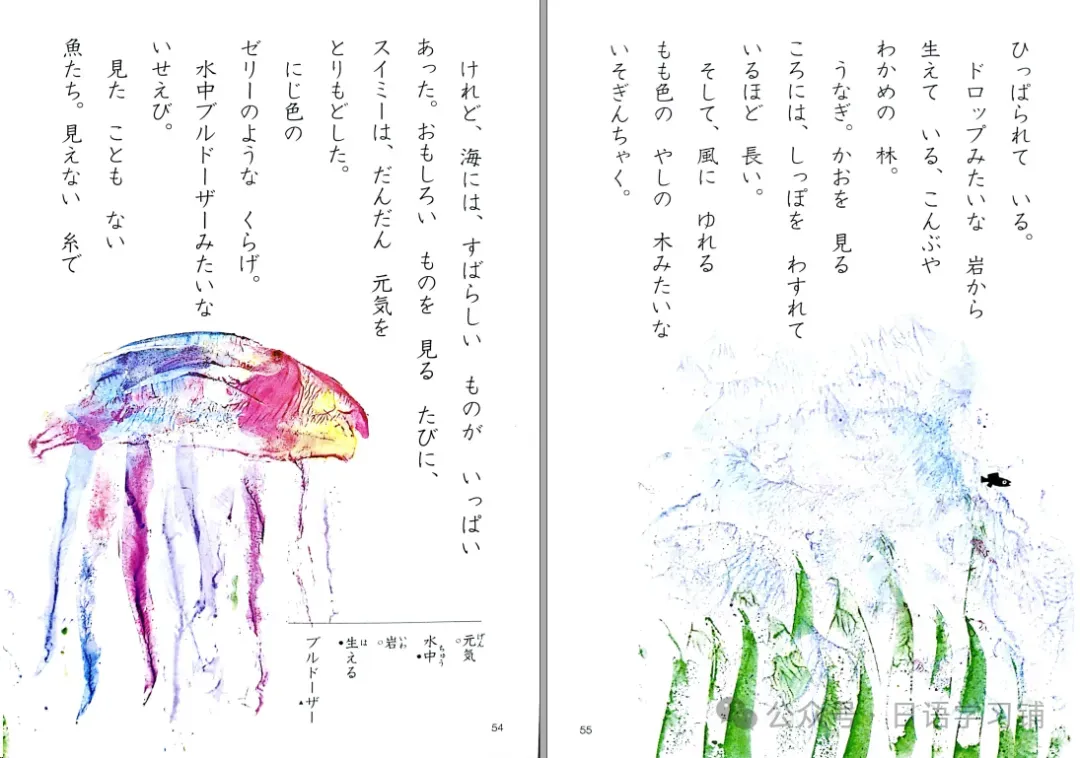 けれど、海には、すばらしい ものが いっぱい
あった。おもしろい ものを 見る たびに、
スイミーは、だんだん 元気を
とりもどした。
にじ色の
ゼリーのような くらげ。
水中ブルドーザーみたいな
いせえび。
見た ことも ない
魚たち。見えない 糸で
げん
元気
ちゅう
水中
いわ
岩
は
生える
ブルドーザー
54
ひっぱられて いる。
ドロップみたいな 岩から
生えて いる、こんぶや
わかめの 林。
うなぎ。かおを 見る
ころには、しっぽを わすれて
いるほど 長い。
そして、風に ゆれる
もも色の やしの 木みたいな
いそぎんちゃく。
55
公众号·日语学习铺